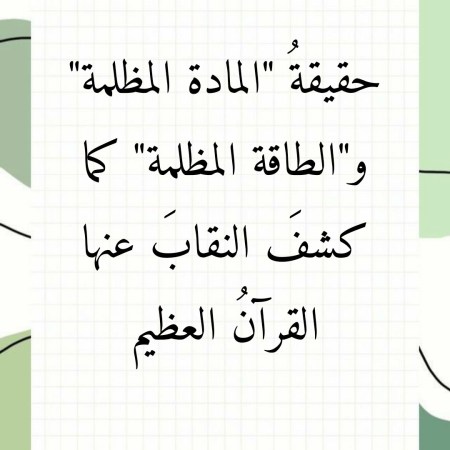 حقيقةُ "المادة المظلمة"
و"الطاقة المظلمة" كما
كشفَ النقابَ عنها
القرآنُ العظيم